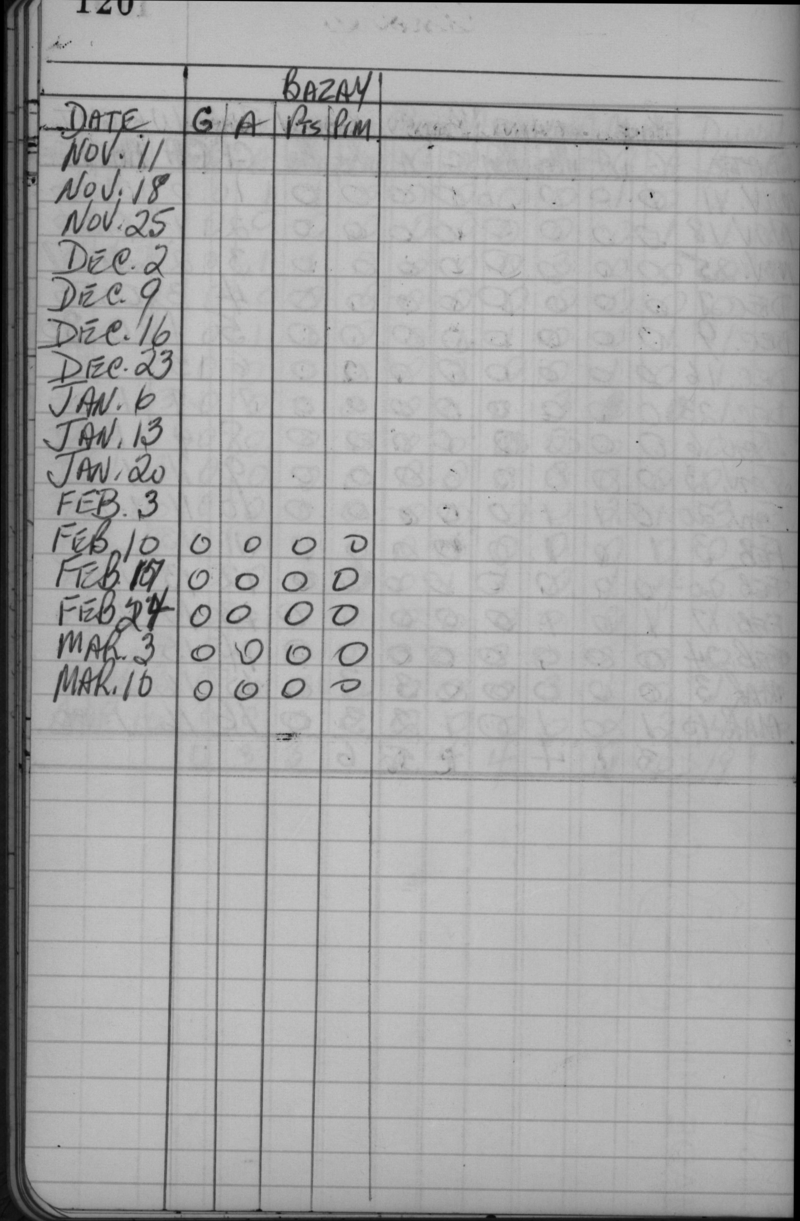 120
BAZAY
DATE G A Pts PIM
NOV. 11
NOV. 18
NOV. 25
DEC. 2
DEC. 9
DEC. 16
DEC. 23
JAN. 6
JAN. 13
JAN. 20
FEB. 3
FEB. 10 0 0 0 0
FEB. 17 0 0 0 0
FEB. 24 0 0 0 0
MAR. 3 0 0 0 0
MAR. 10 0 0 0 0